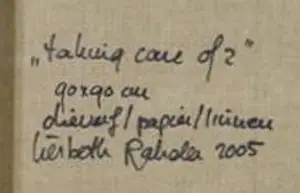 „taking care of 2"
gorgo on
/ papier / linnen
Liesbeth 2005